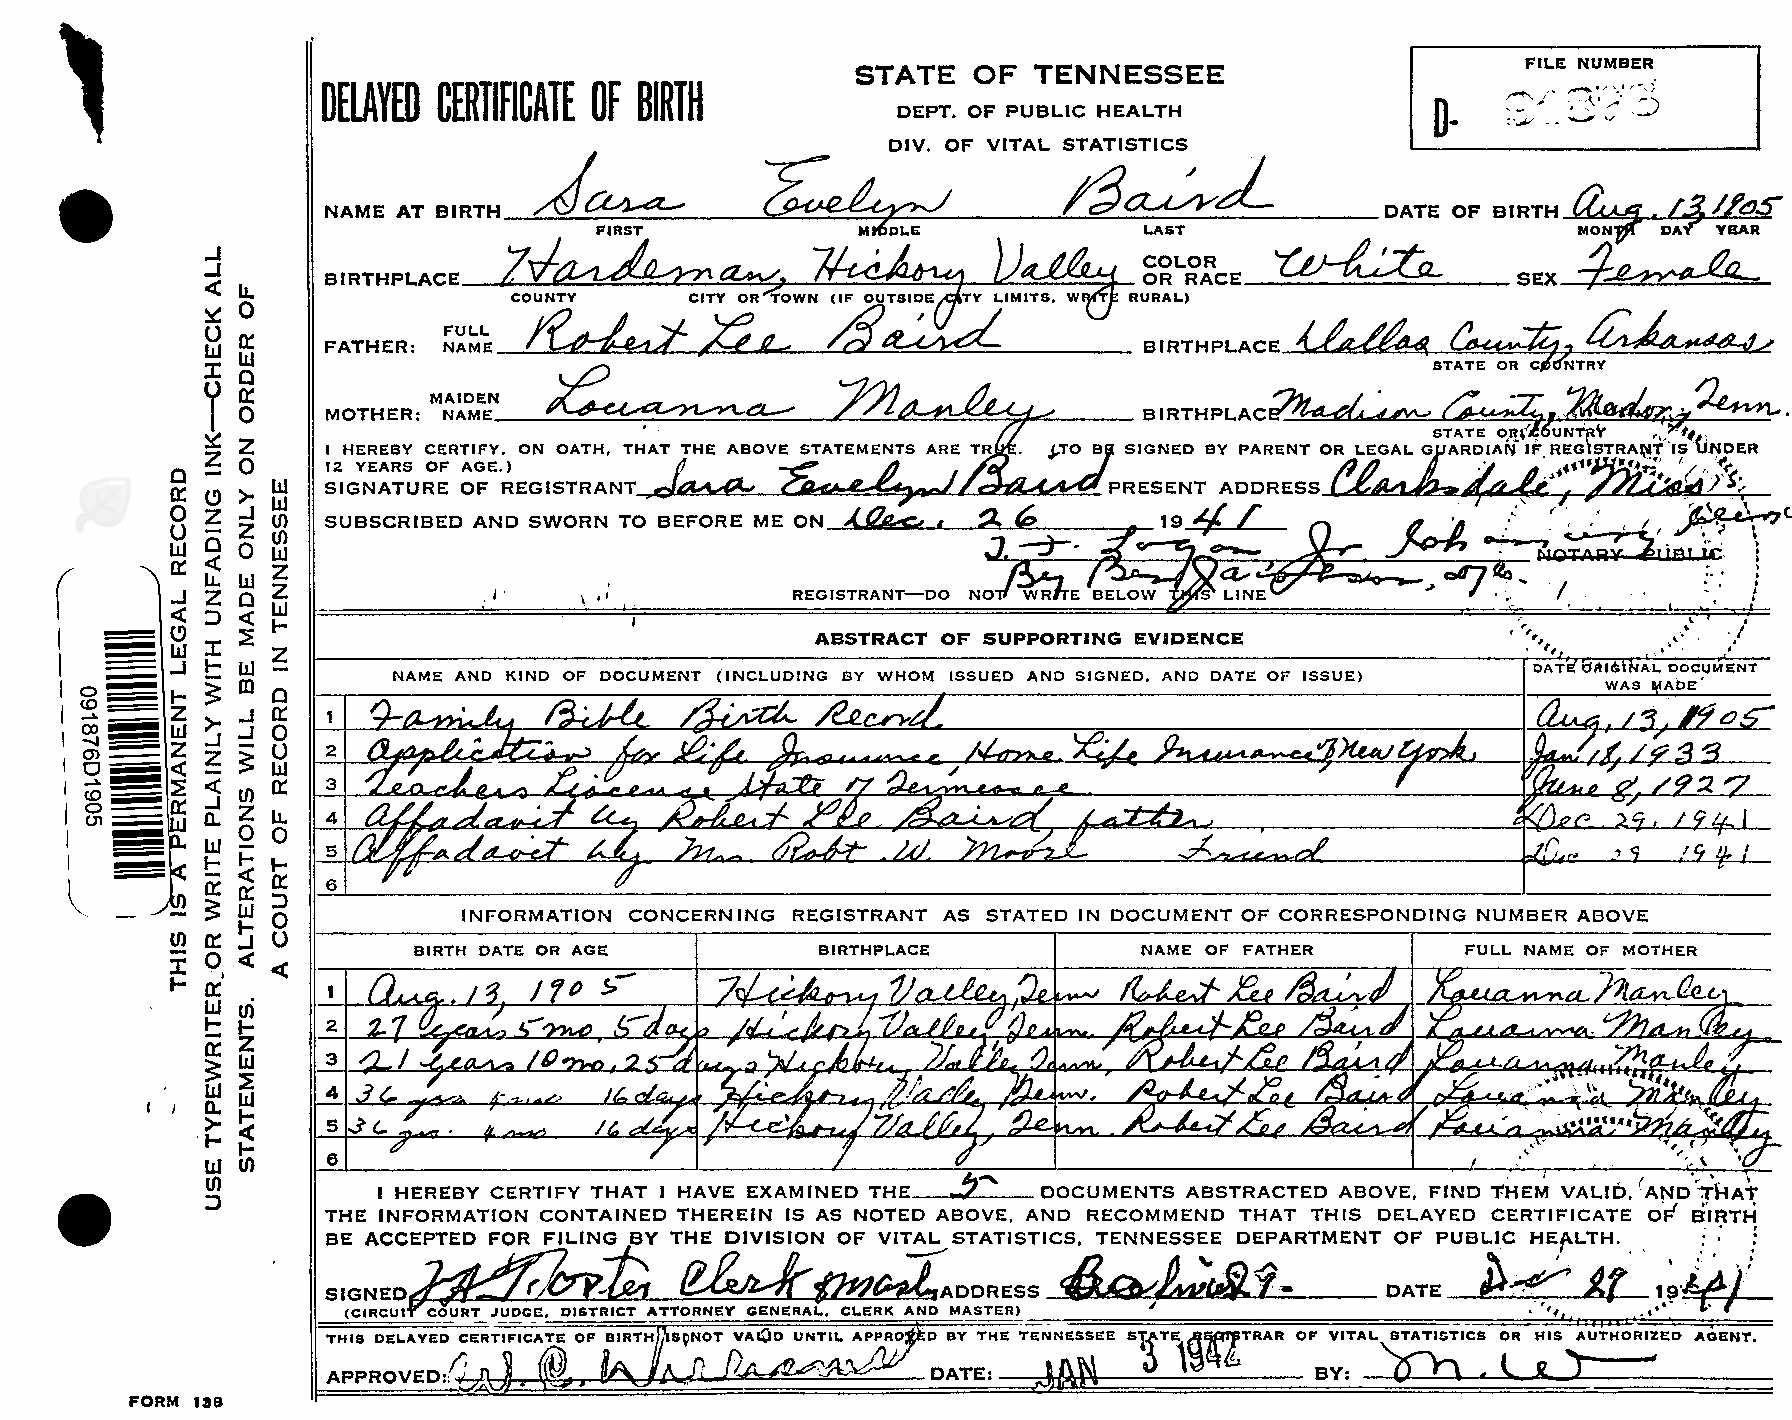 DELAYED CERTIFICATE OF BIRTH
STATE OF TENNESSEE
DEPT. OF PUBLIC HEALTH
DIV. OF VITAL STATISTICS
FILE NUMBER
D-
NAME AT BIRTH Sara Evelyn Baird DATE OF BIRTH Aug. 13, 1905
FIRST MIDDLE LAST MONTH DAY YEAR
BIRTHPLACE Hardeman, Hickory Valley COLOR OR RACE White SEX Female
COUNTY CITY OR TOWN (IF OUTSIDE CITY LIMITS, WRITE RURAL)
FATHER: FULL NAME Robert Lee Baird BIRTHPLACE Dallas County, Arkansas
STATE OR COUNTRY
MOTHER: MAIDEN NAME Louanna Manley BIRTHPLACE Madison County, Tenn.
STATE OR COUNTRY
I HEREBY CERTIFY, ON OATH, THAT THE ABOVE STATEMENTS ARE TRUE. (TO BE SIGNED BY PARENT OR LEGAL GUARDIAN IF REGISTRANT IS UNDER
12 YEARS OF AGE.)
SIGNATURE OF REGISTRANT Sara Evelyn Baird PRESENT ADDRESS Clarksdale, Miss
SUBSCRIBED AND SWORN TO BEFORE ME ON Dec. 26 1941
J. F. Logan Jr
NOTARY PUBLIC
By
REGISTRANT—DO NOT WRITE BELOW THIS LINE
ABSTRACT OF SUPPORTING EVIDENCE
NAME AND KIND OF DOCUMENT (INCLUDING BY WHOM ISSUED AND SIGNED, AND DATE OF ISSUE) DATE ORIGINAL DOCUMENT
WAS MADE
1 Family Bible Birth Record Aug. 13, 1905
2 Application for Life Insurance, Home Life Insurance of New York Jan. 18, 1933
3 Teachers Liscense State of Tennessee June 8, 1927
4 Affadavit by Robert Lee Baird, father Dec. 29, 1941
5 Affadavit by Mrs. Robt. W. Moore Friend Dec 29 1941
6
INFORMATION CONCERNING REGISTRANT AS STATED IN DOCUMENT OF CORRESPONDING NUMBER ABOVE
BIRTH DATE OR AGE BIRTHPLACE NAME OF FATHER FULL NAME OF MOTHER
1 Aug. 13, 1905 Hickory Valley, Tenn Robert Lee Baird Louanna Manley
2 27 years 5 mo. 5 days Hickory Valley, Tenn. Robert Lee Baird Louanna Manley
3 21 years 10 mo, 25 days Hickory Valley Tenn, Robert Lee Baird Louanna Manley
4 36 yrs 4 mo 16 days Hickory Valley Tenn. Robert Lee Baird Louanna Manley
5 36 yrs. 4 mo 16 days Hickory Valley, Tenn. Robert Lee Baird Louanna Manley
6
I HEREBY CERTIFY THAT I HAVE EXAMINED THE 5 DOCUMENTS ABSTRACTED ABOVE, FIND THEM VALID, AND THAT
THE INFORMATION CONTAINED THEREIN IS AS NOTED ABOVE, AND RECOMMEND THAT THIS DELAYED CERTIFICATE OF BIRTH
BE ACCEPTED FOR FILING BY THE DIVISION OF VITAL STATISTICS, TENNESSEE DEPARTMENT OF PUBLIC HEALTH.
SIGNED Clerk ADDRESS DATE Dec 29 1941
(CIRCUIT COURT JUDGE, DISTRICT ATTORNEY GENERAL, CLERK AND MASTER)
THIS DELAYED CERTIFICATE OF BIRTH IS NOT VALID UNTIL APPROVED BY THE TENNESSEE STATE REGISTRAR OF VITAL STATISTICS OR HIS AUTHORIZED AGENT.
APPROVED: DATE: JAN 3 1942 BY:
FORM 138
THIS IS A PERMANENT LEGAL RECORD
USE TYPEWRITER OR WRITE PLAINLY WITH UNFADING INK—CHECK ALL
STATEMENTS. ALTERATIONS WILL BE MADE ONLY ON ORDER OF
A COURT OF RECORD IN TENNESSEE
091876D1905